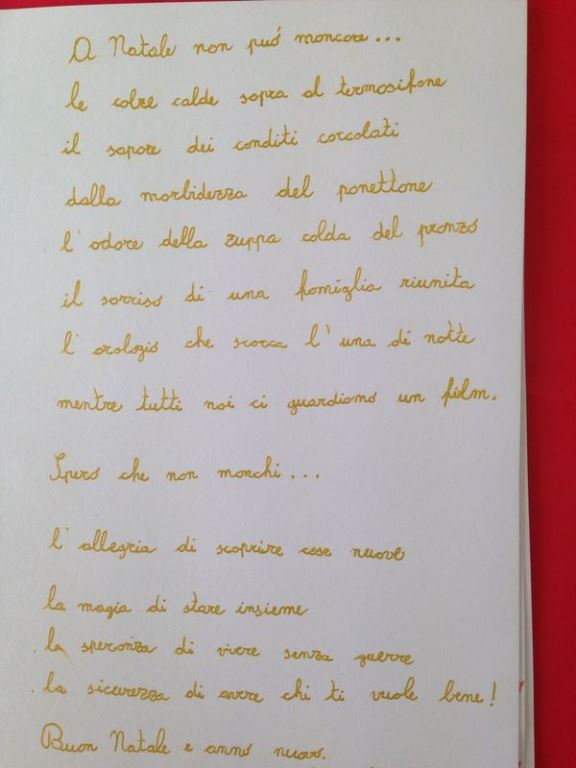 A Natale non puó mancare...
le calze calde sopra al termosifone
il sapore dei canditi coccolati
dalla morbidezza del panettone
l'odore della zuppa calda del pranzo
il sorriso di una famiglia riunita
l'orologio che scocca l'una di notte
mentre tutti noi ci guardiamo un film.
Spero che non manchi...
l'allegria di scoprire cose nuove
la magia di stare insieme
la speranza di vivere senza guerre
la sicurezza di avere chi ti vuole bene!
Buon Natale e anno nuovo.